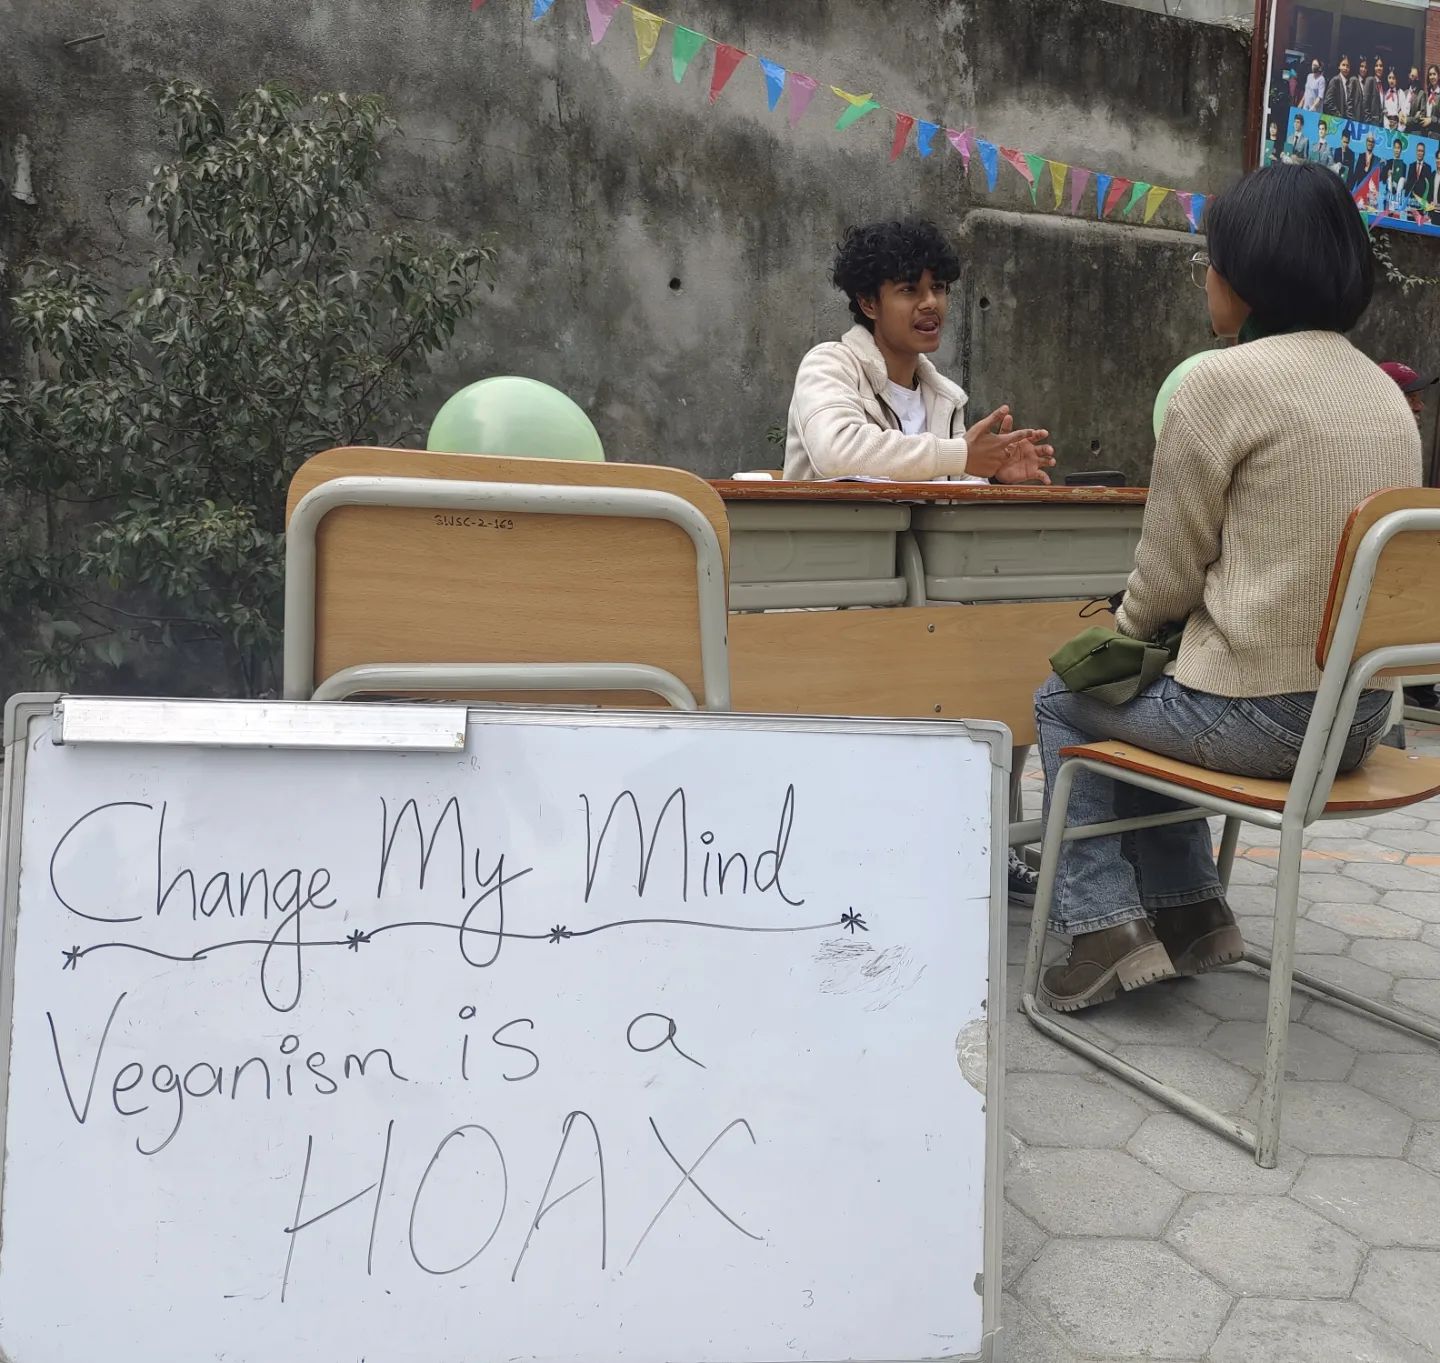 SWSC-2-169
Change My Mind
Veganism is a
HOAX
3